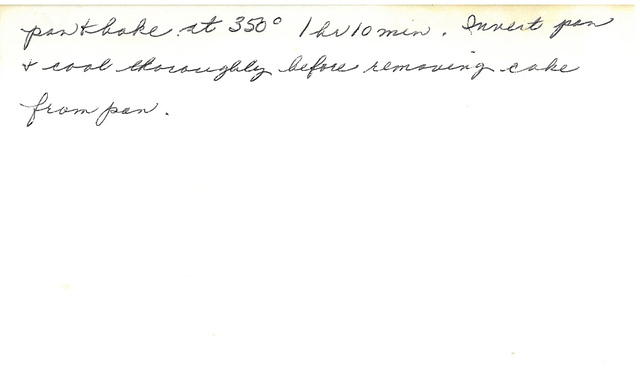 pan & bake at 350° 1 hr 10 min. Invert pan
& cool thoroughly before removing cake
from pan.